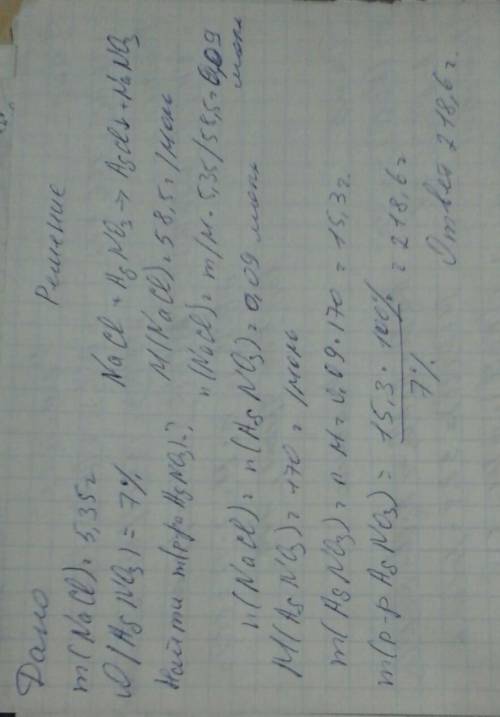 Дано
m(NaCl)=5,35г
ω(AgNO3)=7%
Найти m(р-ра AgNO3)=?
Решение
NaCl+AgNO3→AgCl↓+NaNO3
M(NaCl)=58,5г/моль
n(NaCl)=m/M=5,35/58,5=0,09 моль
n(NaCl)=n(AgNO3)=0,09 моль
M(AgNO3)=170г/моль
m(AgNO3)=n·M=0,09·170=15,3г.
m(р-р AgNO3)=15,3·100%/7%=218,6г
Ответ 218,6г.